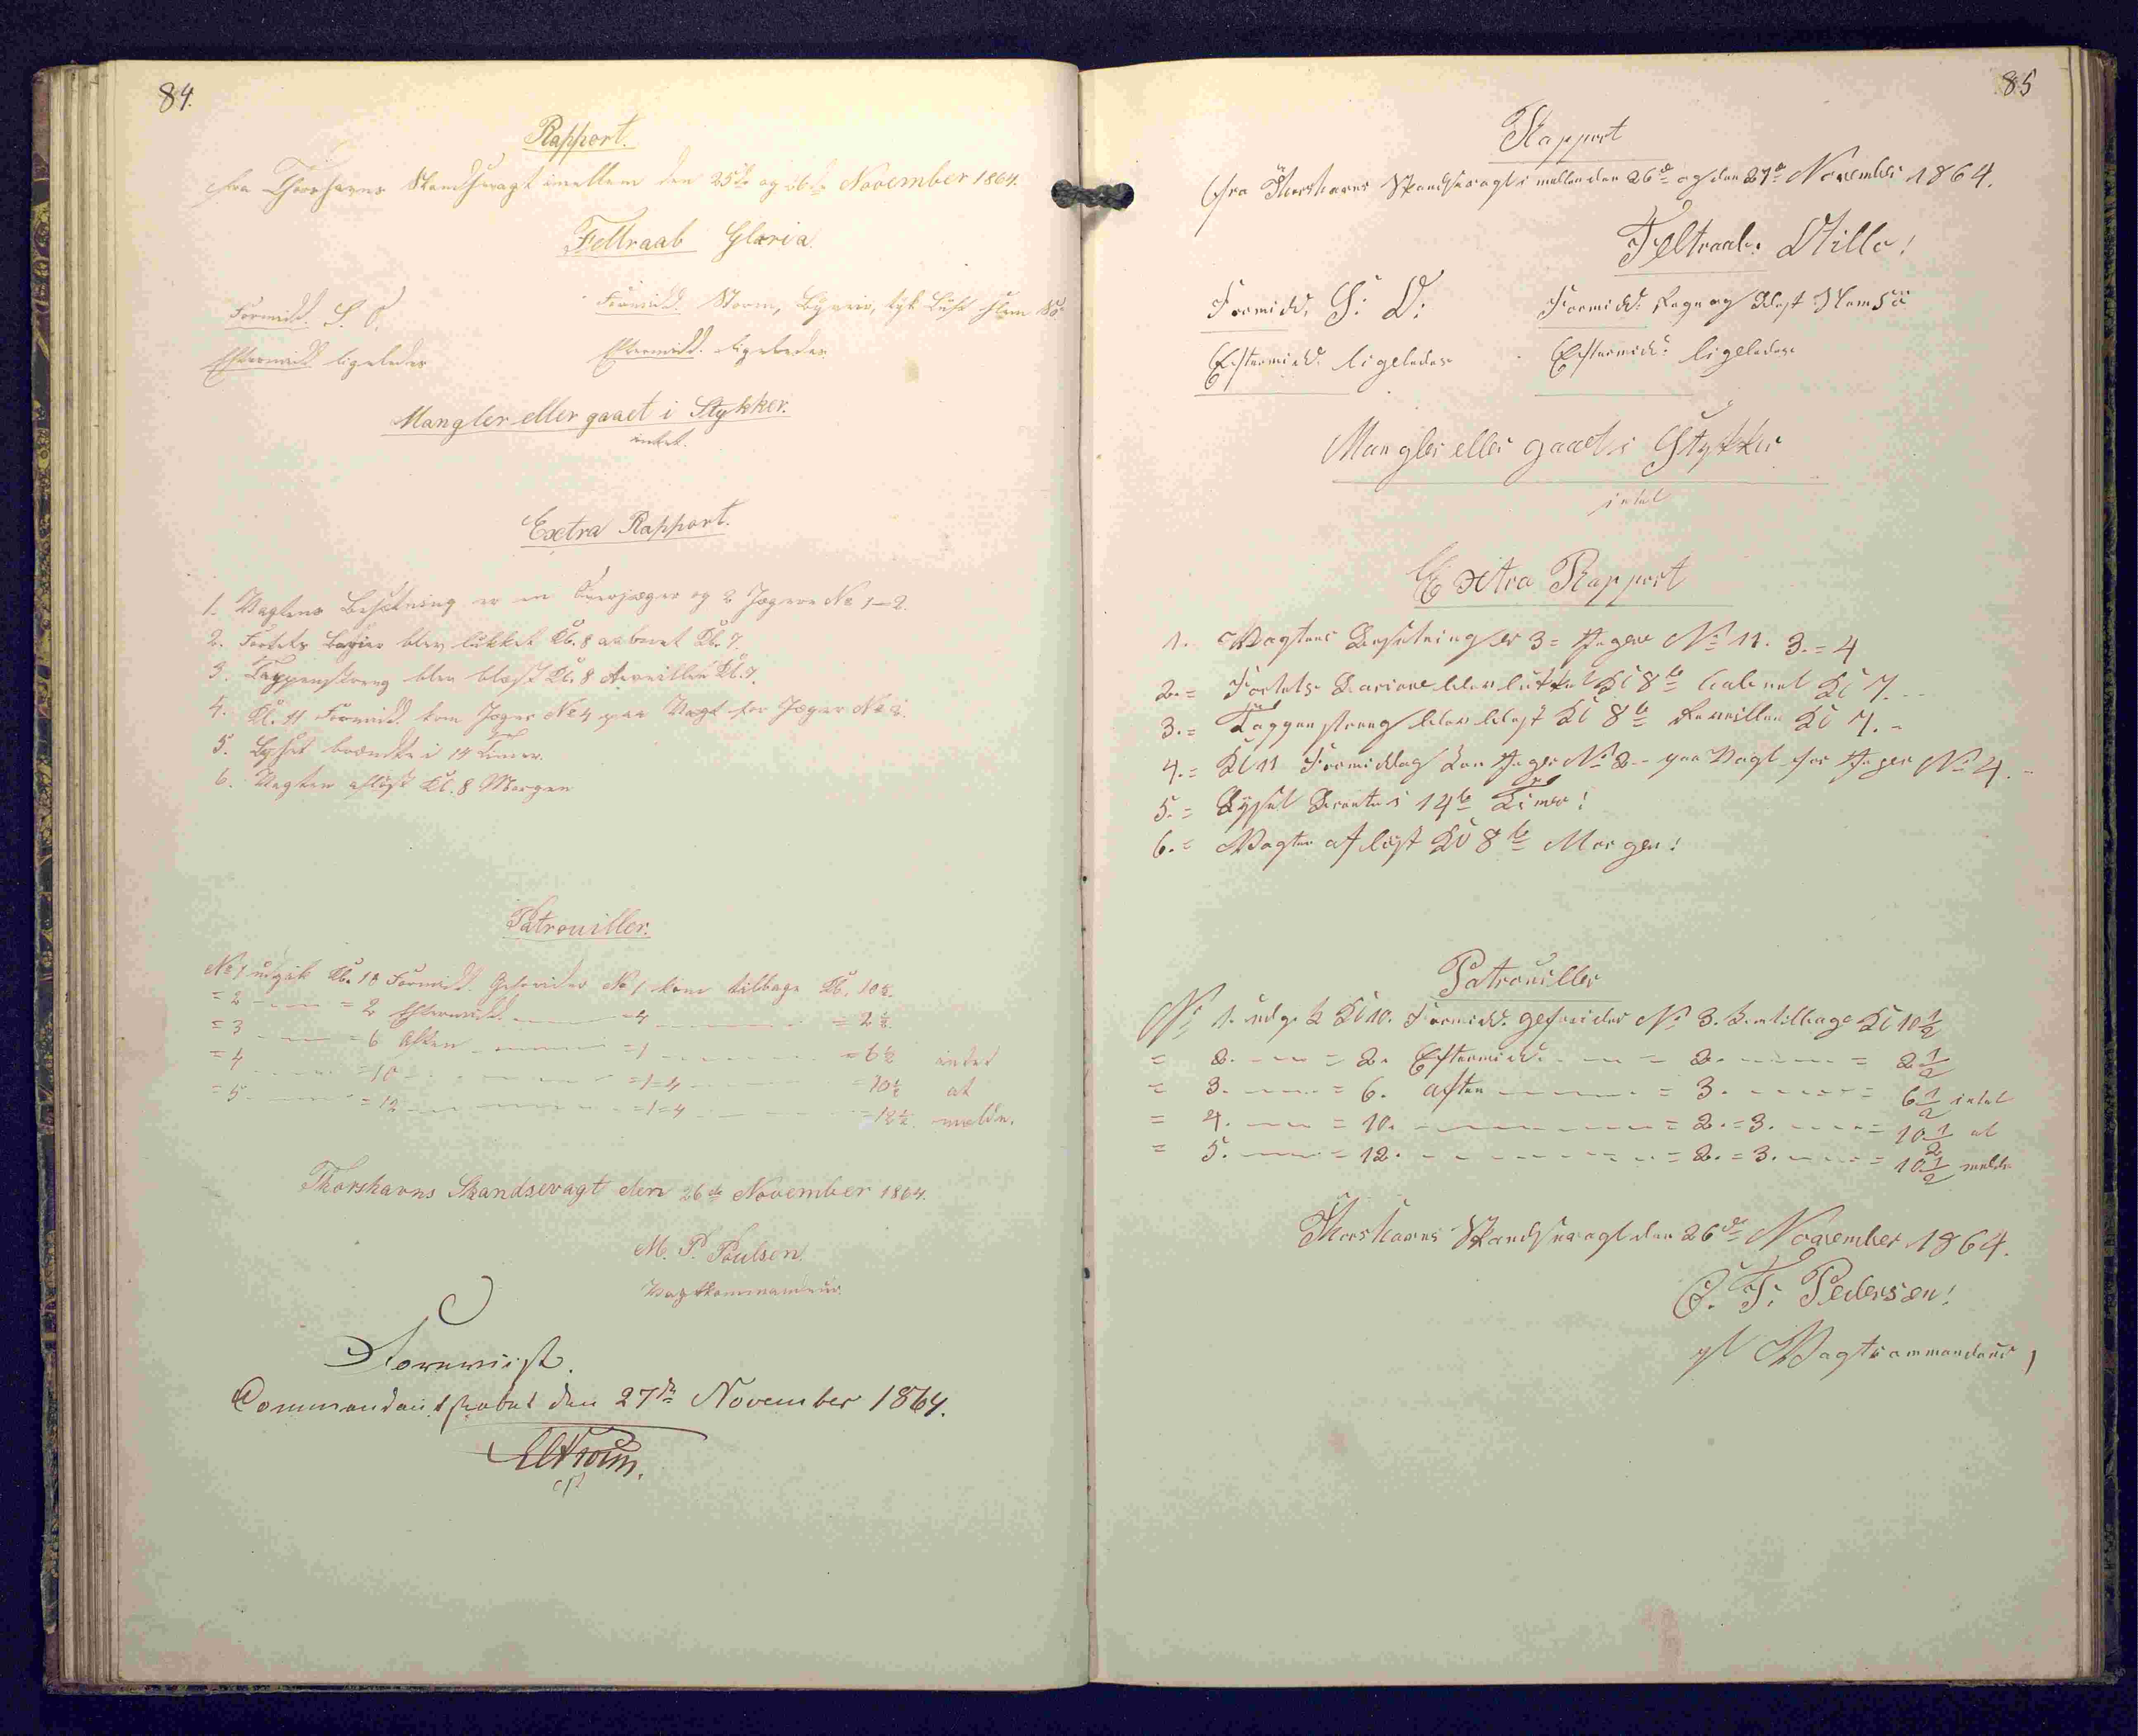 84.
Rapport.
fra Thorshavns Skandsevagt imellem den 25de og 26de November 1864.
Feltraab Gloria.
Formidd. S. O.
Formidd. Storm, Byveir, tyk Luft slem Sö
Eftermidd. ligeledes
Eftermidd. ligeledes
Mangler eller gaaet i Stykker.
intet.
Extra Rapport.
1. Vagtens Besætning er en Overjæger og 2 Jægere No 1-2.
2. Fortets Barriere blev lukket Kl. 8 aabnet Kl. 7.
3. Tappenstreng blev blæst Kl. 8 Reveillen Kl. 7.
4. Kl. 11 Formidd. kom Jæger No 4 paa Vagt for Jæger No 2.
5. Lyset brændte i 14 Timer.
6. Vagten aflöst Kl. 8 Morgen
Patrouiller.
No 1 udgik Kl. 10 Formidd. Gefreider No 1 kom tilbage Kl. 10½.
= 2 = 2 Eftermidd. = 4 = 2½.
= 3 = 6 Aften = 1 = 6½ intet
= 4 = 10 = 1=4 = 10½ at
= 5 = 12 = 1=4 = 12½ melde.
Thorshavns Skandsevagt den 26de November 1864.
M. P. Poulsen.
Vagtkommandeur.
Foreviist.
Commandantskabet den 27de November 1864.
85
Rapport
fra Thorshavns Skandsevagt i mellem den 26de og den 27de November 1864.
Feltraab: Stille!
Formidd. S: O:
Formidd: Regn og blest Slem Sö
Eftermidd. ligeledes
Eftermidd: ligeledes
Mangler eller gaaet i Stykker
intet
Extra Rapport
1. Vagtens Besetning er 3 = Jegere No 11. 3. = 4
2. = Fortets Bariere blev lukket Kl 8te aabnet Kl 7.
3. = Tappenstreng blev blest Kl 8te Reveillen Kl 7.
4. = Kl 11 Formiddag kom Jeger No 2 paa Vagt for Jeger No 4.
5. = Lyset Brente i 14te Timer!
6. = Vagten aflöst Kl 8te Morgen!
Patrouiller
No 1. udgik Kl 10. Formidd. gefreider No 3. kom tilbage Kl 10½
= 2. = 2. Eftermidd. = 2. = 2½
= 3. = 6. aften = 3. = 6½ intet
= 4. = 10. = 2. = 3. = 10½ at
= 5. = 12. = 2. = 3. = 10½ melde
Thorshavns Skandsevagt den 26de November 1864.
T. Pedersen!
Vagtcommandeur